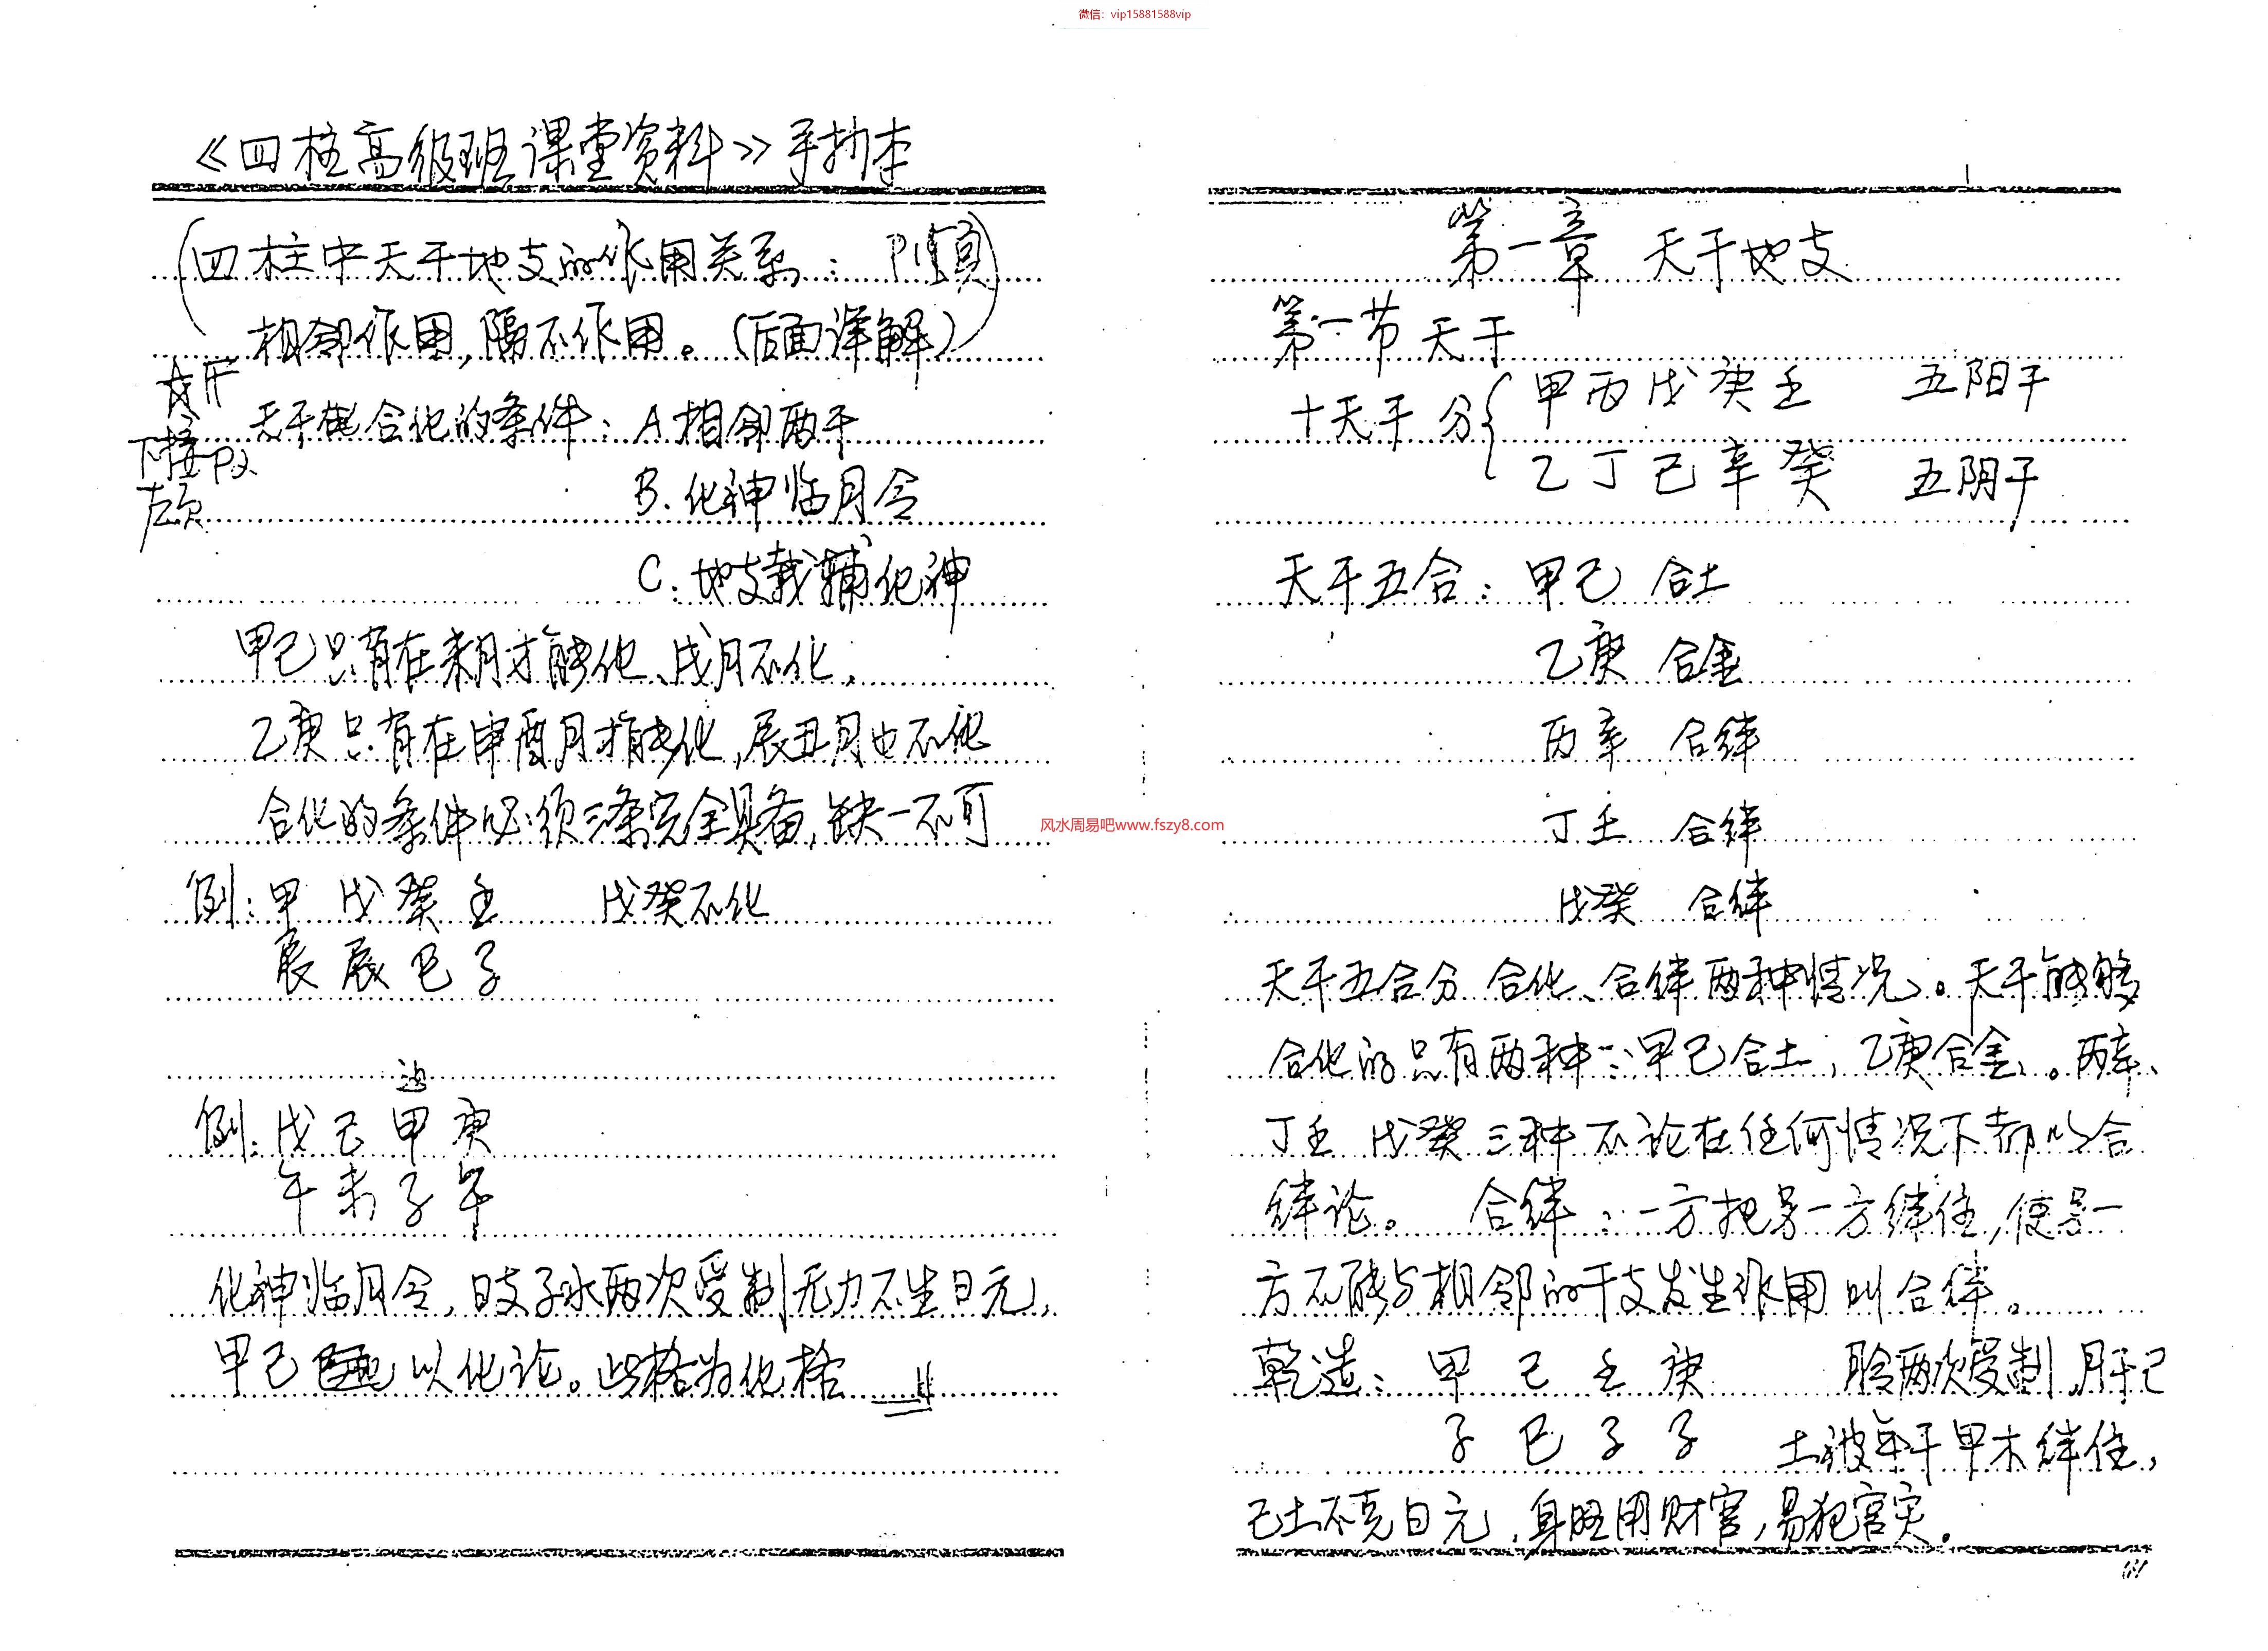 微信：vip15881588vip
《四柱高级班课堂资料》手抄本
（四柱中天干地支的作用关系：P1页
相邻作用，隔不作用。（后面详解））
天干 合化的条件：A 相邻两干
下接P2
左页
B. 化神临月令
C: 地支载辅化神
甲己只有在未月才能化、戌月不化，
乙庚只有在申酉月才能化，辰丑月也不化
合化的条件必须三条完全具备，缺一不可
例：甲 戊 癸 壬 戊癸不化
辰 辰 巳 子
例：戊 己 甲 庚
午 未 子 午
化神临月令，日支子水两次受制无力不生日元，
甲己 以化论。此格为化格
第一章 天干地支
第一节 天干
十天干 分{ 甲丙戊庚壬 五阳干
乙丁己辛癸 五阴干
天干五合：甲己 合土
乙庚 合金
丙辛 合绊
丁壬 合绊
戊癸 合绊
天干五合分 合化、合绊两种情况。天干能够
合化的只有两种：甲己合土，乙庚合金。丙辛、
丁壬 戊癸三种不论在任何情况下都以合
绊论。 合绊：一方把另一方绊住，使另一
方不能与相邻的干支发生作用叫合绊。
乾造：甲 己 壬 庚 月令两次受制，月干己
子 巳 子 子 土被年干甲木绊住，
己土不克日元，身旺用财官，易犯官灾。
风水周易吧www.fszy8.com